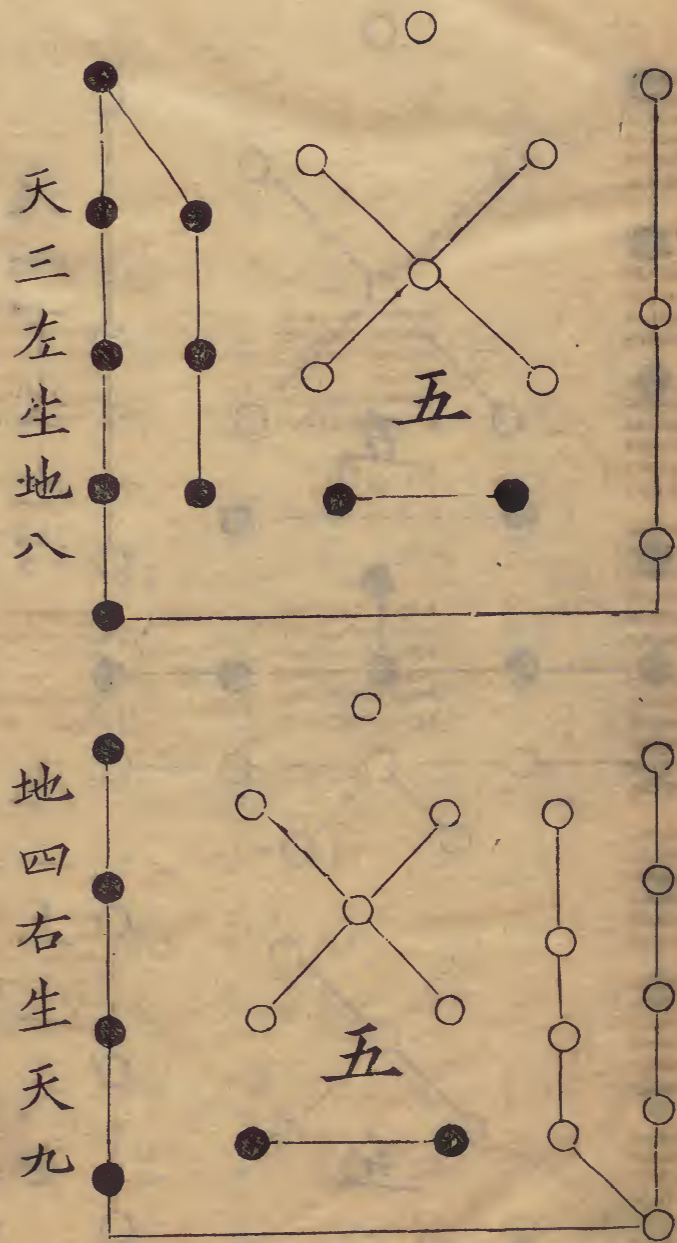 天三左生地八
五
地四右生天九
五